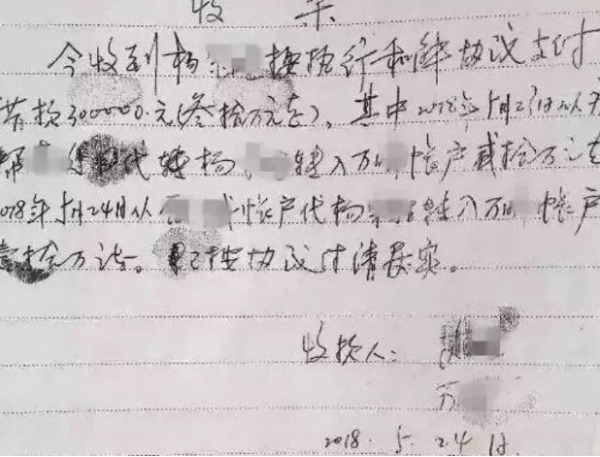 收 条
今收到杨 按执行和解协议支付
借款300000.元(叁拾万元整),其中2018年5月23日从
代转杨 转入万 帐户贰拾万元
2018年5月24日从 帐户代杨 转入万 帐户
壹拾万元整。已按协议付清属实。
收款人:
万
2018.5.24日